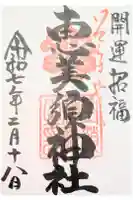 開運招福
恵美須神社
令和七年二月十八日